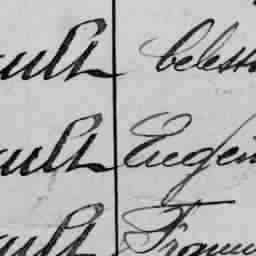 ault Celest
ault Eugén
ault Franc